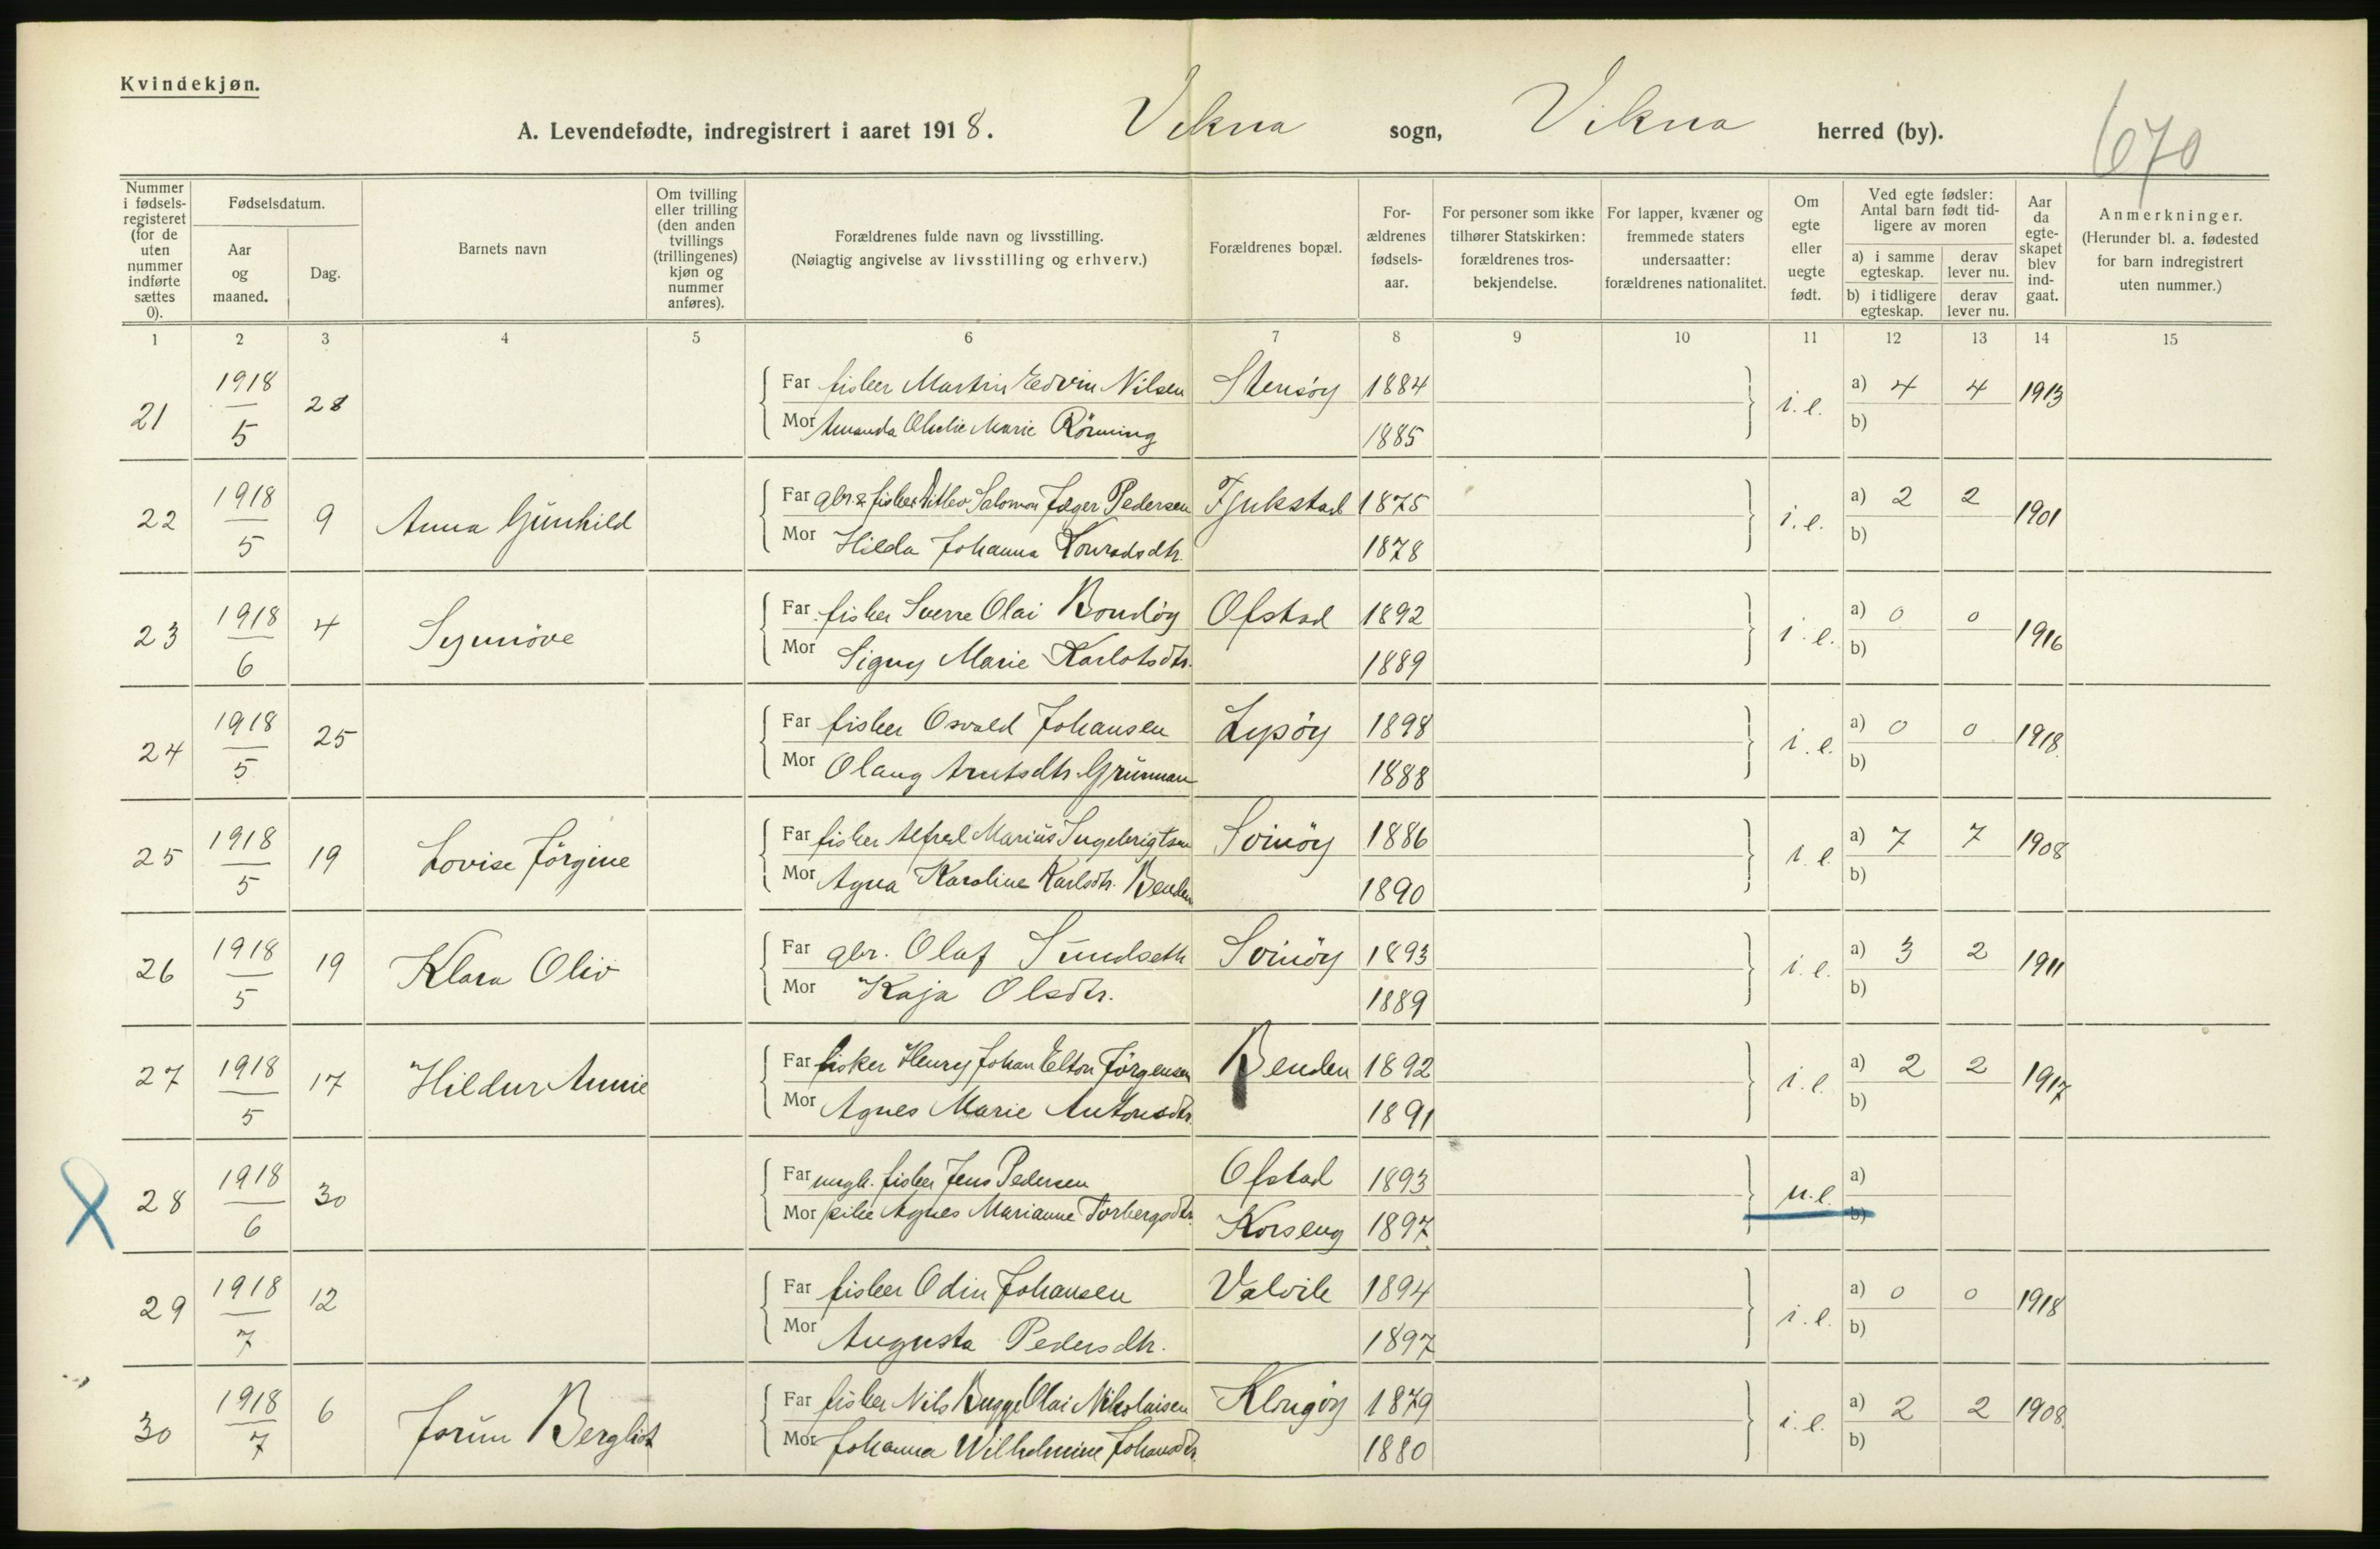 Kvindekjøn.
A. Levendefødte, indregistrert i aaret 1918. Vikna sogn, Vikna herred (by). 670
Nummer i fødselsregisteret (for de uten nummer indførte sættes 0).
Fødselsdatum.
Aar og maaned.
Dag.
Barnets navn
Om tvilling eller trilling (den anden tvillings (trillingenes) kjøn og nummer anføres).
Forældrenes fulde navn og livsstilling.
(Nøiagtig angivelse av livsstilling og erhverv.)
Forældrenes bopæl.
Forældrenes fødselsaar.
For personer som ikke tilhører Statskirken: forældrenes trosbekjendelse.
For lapper, kvæner og fremmede staters undersaatter: forældrenes nationalitet.
Om egte eller uegte født.
Ved egte fødsler: Antal barn født tidligere av moren
a) i samme egteskap. derav lever nu.
b) i tidligere egteskap. derav lever nu.
Aar da egteskapet blev indgaat.
Anmerkninger.
(Herunder bl. a. fødested for barn indregistrert uten nummer.)
1 2 3 4 5 6 7 8 9 10 11 12 13 14 15
21 1918/5 28 Far fisker Martin Edvin Nilsen Stensöy 1884 i.e. a) 4 4 1913
Mor Amanda Ovelie Marie Rörming 1885 b)
22 1918/5 9 Anna Gunhild Far gbr & fisker Ditlev Salomon Jæger Pedersen Fjukstad 1875 i.e. a) 2 2 1901
Mor Hilda Johanna Konradsdtr. 1878 b)
23 1918/6 4 Synnöve Far fisker Sverre Olai Bondöy Ofstad 1892 i.e. a) 0 0 1916
Mor Signy Marie Karlotsdtr. 1889 b)
24 1918/5 25 Far fisker Osvald Johansen Lysöy 1898 i.e. a) 0 0 1918
Mor Olaug Arntsdtr. Grunnan 1888 b)
25 1918/5 19 Lovise Jörgine Far fisker Alfred Marius Ingebrigtsen Svinöy 1886 i.e. a) 7 7 1908
Mor Agna Karoline Karlsdtr. Benden 1890 b)
26 1918/5 19 Klara Oliv Far gbr. Olaf Sundseth Svinöy 1893 i.e. a) 3 2 1911
Mor Kaja Olsdtr. 1889 b)
27 1918/5 17 Hildur Annie Far fisker Henry Johan Elton Jörgensen Benden 1892 i.e. a) 2 2 1917
Mor Agnes Marie Antonsdtr. 1891 b)
28 1918/6 30 Far ungk. fisker Jens Pedersen Ofstad 1893 u.e. a)
Mor pike Agnes Marianne Torbergsdtr. Korseng 1897 b)
29 1918/7 12 Far fisker Odin Johansen Valvik 1894 i.e. a) 0 0 1918
Mor Augusta Pedersdtr. 1897 b)
30 1918/7 6 Jorun Bergliot Far fisker Nils Bugge Olai Nikolaisen Klongöy 1879 i.e. a) 2 2 1908
Mor Johanna Wilhelmine Johansdtr. 1880 b)